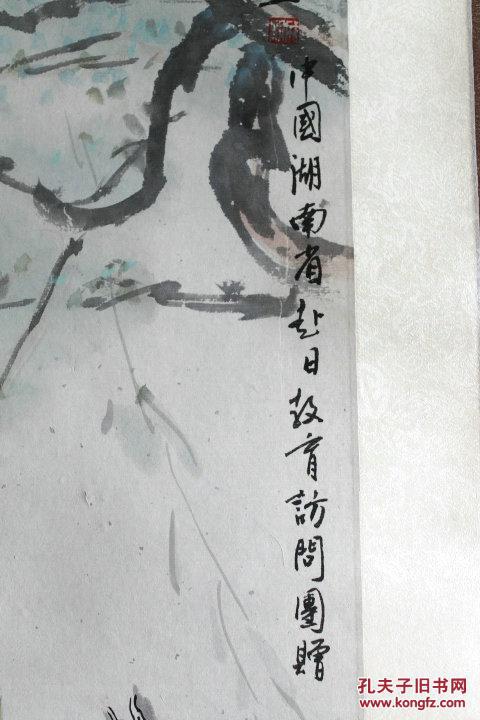 中國湖南省赴日教育訪問團贈
孔夫子旧书网
www.kongfz.com